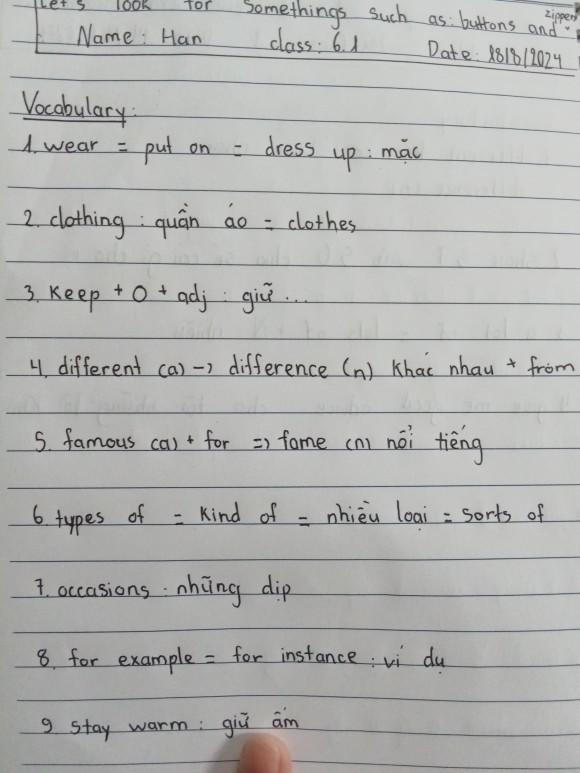 Let's look for somethings such as: buttons and zippers.
Name: Han class: 6.1 Date: 18/8/2024
Vocabulary:
1. wear = put on = dress up : mặc
2. clothing : quần áo = clothes
3. Keep + O + adj : giữ ...
4. different (a) -> difference (n) khác nhau + from
5. famous (a) + for => fame (n) nổi tiếng
6. types of = Kind of = nhiều loại = sorts of
7. occasions : những dịp
8. for example = for instance : ví dụ
9. stay warm : giữ ấm